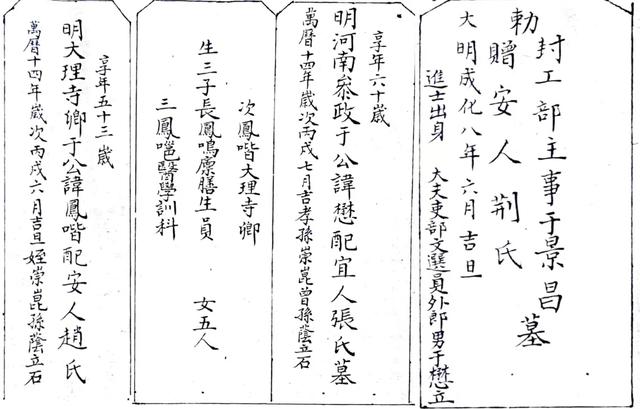 勅封工部主事于景昌墓
贈安人荆氏
大明成化八年六月吉旦
進士出身 大夫吏部文選員外郎男于懋立
享年六十歲
明河南叅政于公諱懋配宜人張氏墓
萬曆十四年歲次丙戌七月吉孝孫崇崑曾孫蔭立石
次鳳喈大理寺卿
生三子長鳳鳴廪膳生員 女五人
三鳳嗈醫學訓科
享年五十三歲
明大理寺卿于公諱鳳喈配安人趙氏
萬曆十四年歲次丙戌六月吉旦姪崇崑孫蔭立石